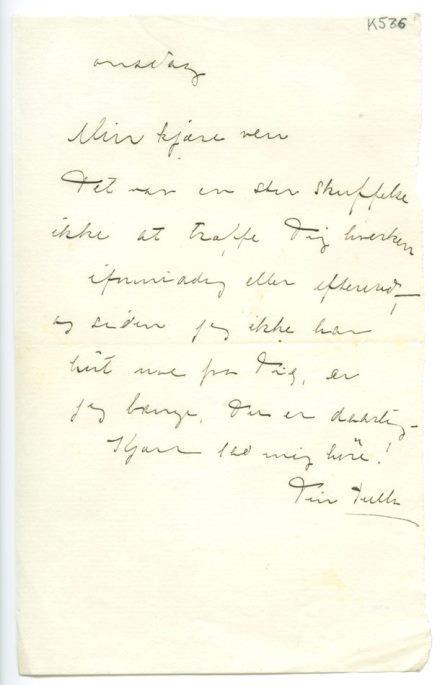 K536
onsdag
Min kjære ven
Det var en stor skuffelse
ikke at træffe Dig hverken
iformiddag eller efterm.,
og siden jeg ikke har
hørt noe fra Dig, er
jeg bange, Du er daarlig –
Kjære lad mig høre!
Din Tulla